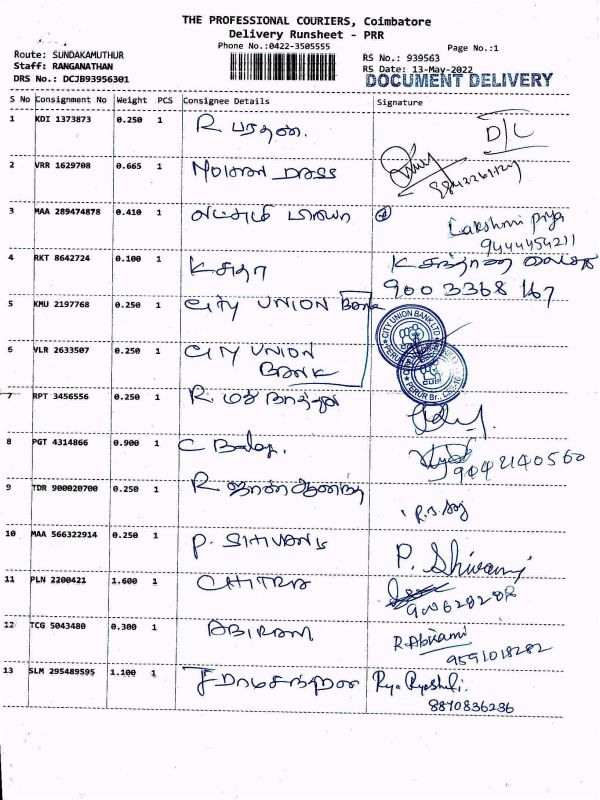 THE PROFESSIONAL COURIERS, Coimbatore
Delivery Runsheet - PRR
Phone No.:0422-3505555
Page No.:1
Route: SUNDAKAMUTHUR
RS No.: 939563
Staff: RANGANATHAN
RS Date: 13-May-2022
DRS No.: DCJB93956301
DOCUMENT DELIVERY
S No Consignment No Weight PCS Consignee Details Signature
1 KDI 1373873 0.250 1 R பரதன். D/L
2 VRR 1629708 0.665 1
3 MAA 289474878 0.410 1 Lakshmi Priya
9444454211
4 RKT 8642724 0.100 1 K சுதா K
900 3368 167
5 KMU 2197768 0.250 1 CITY UNION BANK
CITY UNION BANK LTD
6 VLR 2633507 0.250 1 CITY UNION
BANK
PERUR Br.,
7 RPT 3456556 0.250 1 R.
8 PGT 4314866 0.900 1 C Balaji.
9042140560
9 TDR 900020700 0.250 1 R
10 MAA 566322914 0.250 1 P. SHIVANI P. Shivani
11 PLN 2200421 1.600 1 CHITRA
12 TCG 5043480 0.300 1 ABIRAMI R.Abirami
9551018282
13 SLM 295489595 1.100 1
8870836236